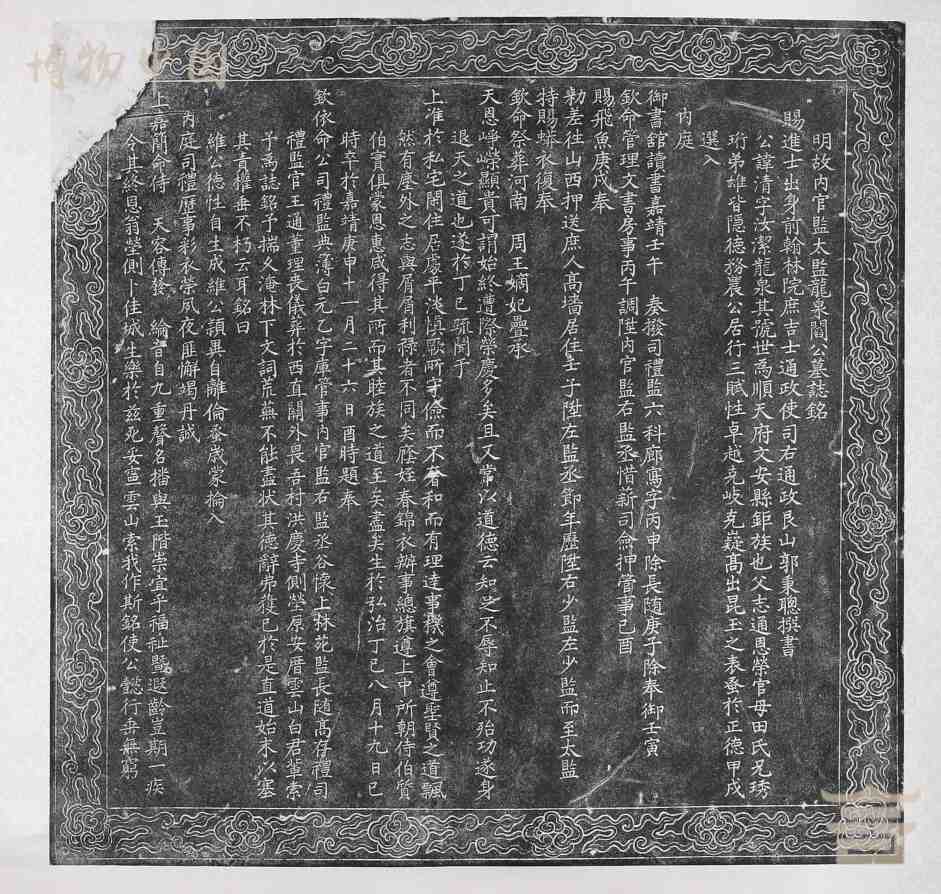 明故內官監太監龍泉閻公墓誌銘
賜進士出身前翰林院庶吉士通政使司右通政艮山郭秉聰撰書
公諱清字汝潔龍泉其號世為順天府文安縣鉅族也父志通恩榮官母田氏兄琇
珩弟雄皆隱德務農公居行三賦性卓越克岐克嶷高出昆玉之表蚤於正德甲戌
選入
內庭
御書館讀書嘉靖壬午 奏撥司禮監六科廊寫字丙申除長隨庚子除奉御壬寅
欽命管理文書房事丙午調陞內官監右監丞惜薪司僉押管事己酉
賜飛魚庚戌奉
勑差往山西押送庶人高墻居住壬子陞左監丞節年歷陞右少監左少監而至太監
持賜蟒衣復奉
欽命祭葬河南 周王嫡妃疊承
天恩崢嶸顯貴可謂始終遭際榮慶多矣且又常以道德云知足不辱知止不殆功遂身
退天之道也遂於丁巳疏聞于
上准於私宅閑住居處平淡慎歐所守儉而不奢和而有理達事機之會遵聖賢之道飄
然有塵外之志與屑屑利祿者不同矣廕姪春錦衣辦事總旗遵上中所朝侍伯質
伯實俱蒙恩惠咸得其所而其睦族之道至矣盡矣生於弘治丁巳八月十九日巳
時卒於嘉靖庚申十一月二十六日酉時題奉
欽依命公司禮監典簿白元乙字庫管事內官監右監丞谷懷上林苑監長隨高存禮司
禮監官王通董理喪儀葬於西直關外畏吾村洪慶寺側塋原安厝雲山白君輩索
予為誌銘予揣久淹林下文詞荒蕪不能盡狀其德辭弗獲已於是直道始末以塞
其責權垂不朽云耳銘曰
維公德性自生成維公穎異自離倫蚤歲蒙掄入
內庭司禮歷事彩衣榮夙夜匪懈竭丹誠
上嘉簡命侍 天容傳發 綸音自九重聲名播與玉階崇宜乎福祉暨遐齡豈期一疾
令其終恩翁塋側卜佳城生樂於茲死安寧雲山索我作斯銘使公懿行垂無窮
博物中国